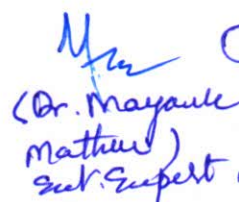 (Dr. Mayank
Mathur)
Sub. Expert